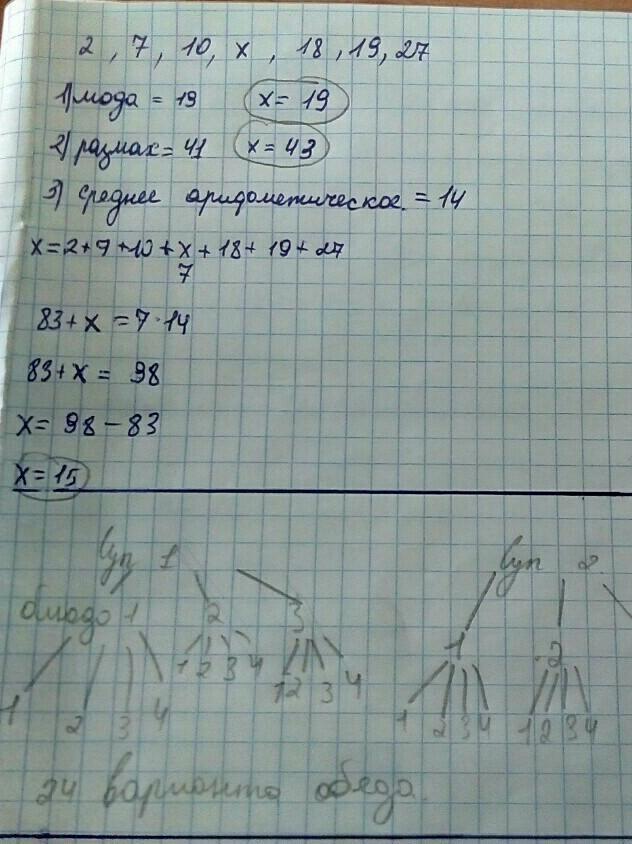 2 , 7 , 10, x , 18 , 19, 27
1) мода = 19 x = 19
2) размах = 41 x = 43
3) среднее аридометическое. = 14
x = 2+7+10+x+18+19+27
7
83+x = 7·14
83+x = 98
x = 98 – 83
x = 15
Суп 1 Суп 2
блюдо 1 2 3
1 2
1 2 3 4 1 2 3 4
1 2 3 4 1 2 3 4 1 2 3 4
24 варианта обеда.